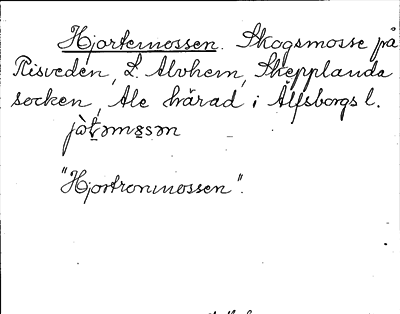 Hjortemossen. Skogsmosse på
Risveden, L. Alvhem, Skepplanda
socken, Ale härad i Älfsborgs l.
"Hjortronmossen".